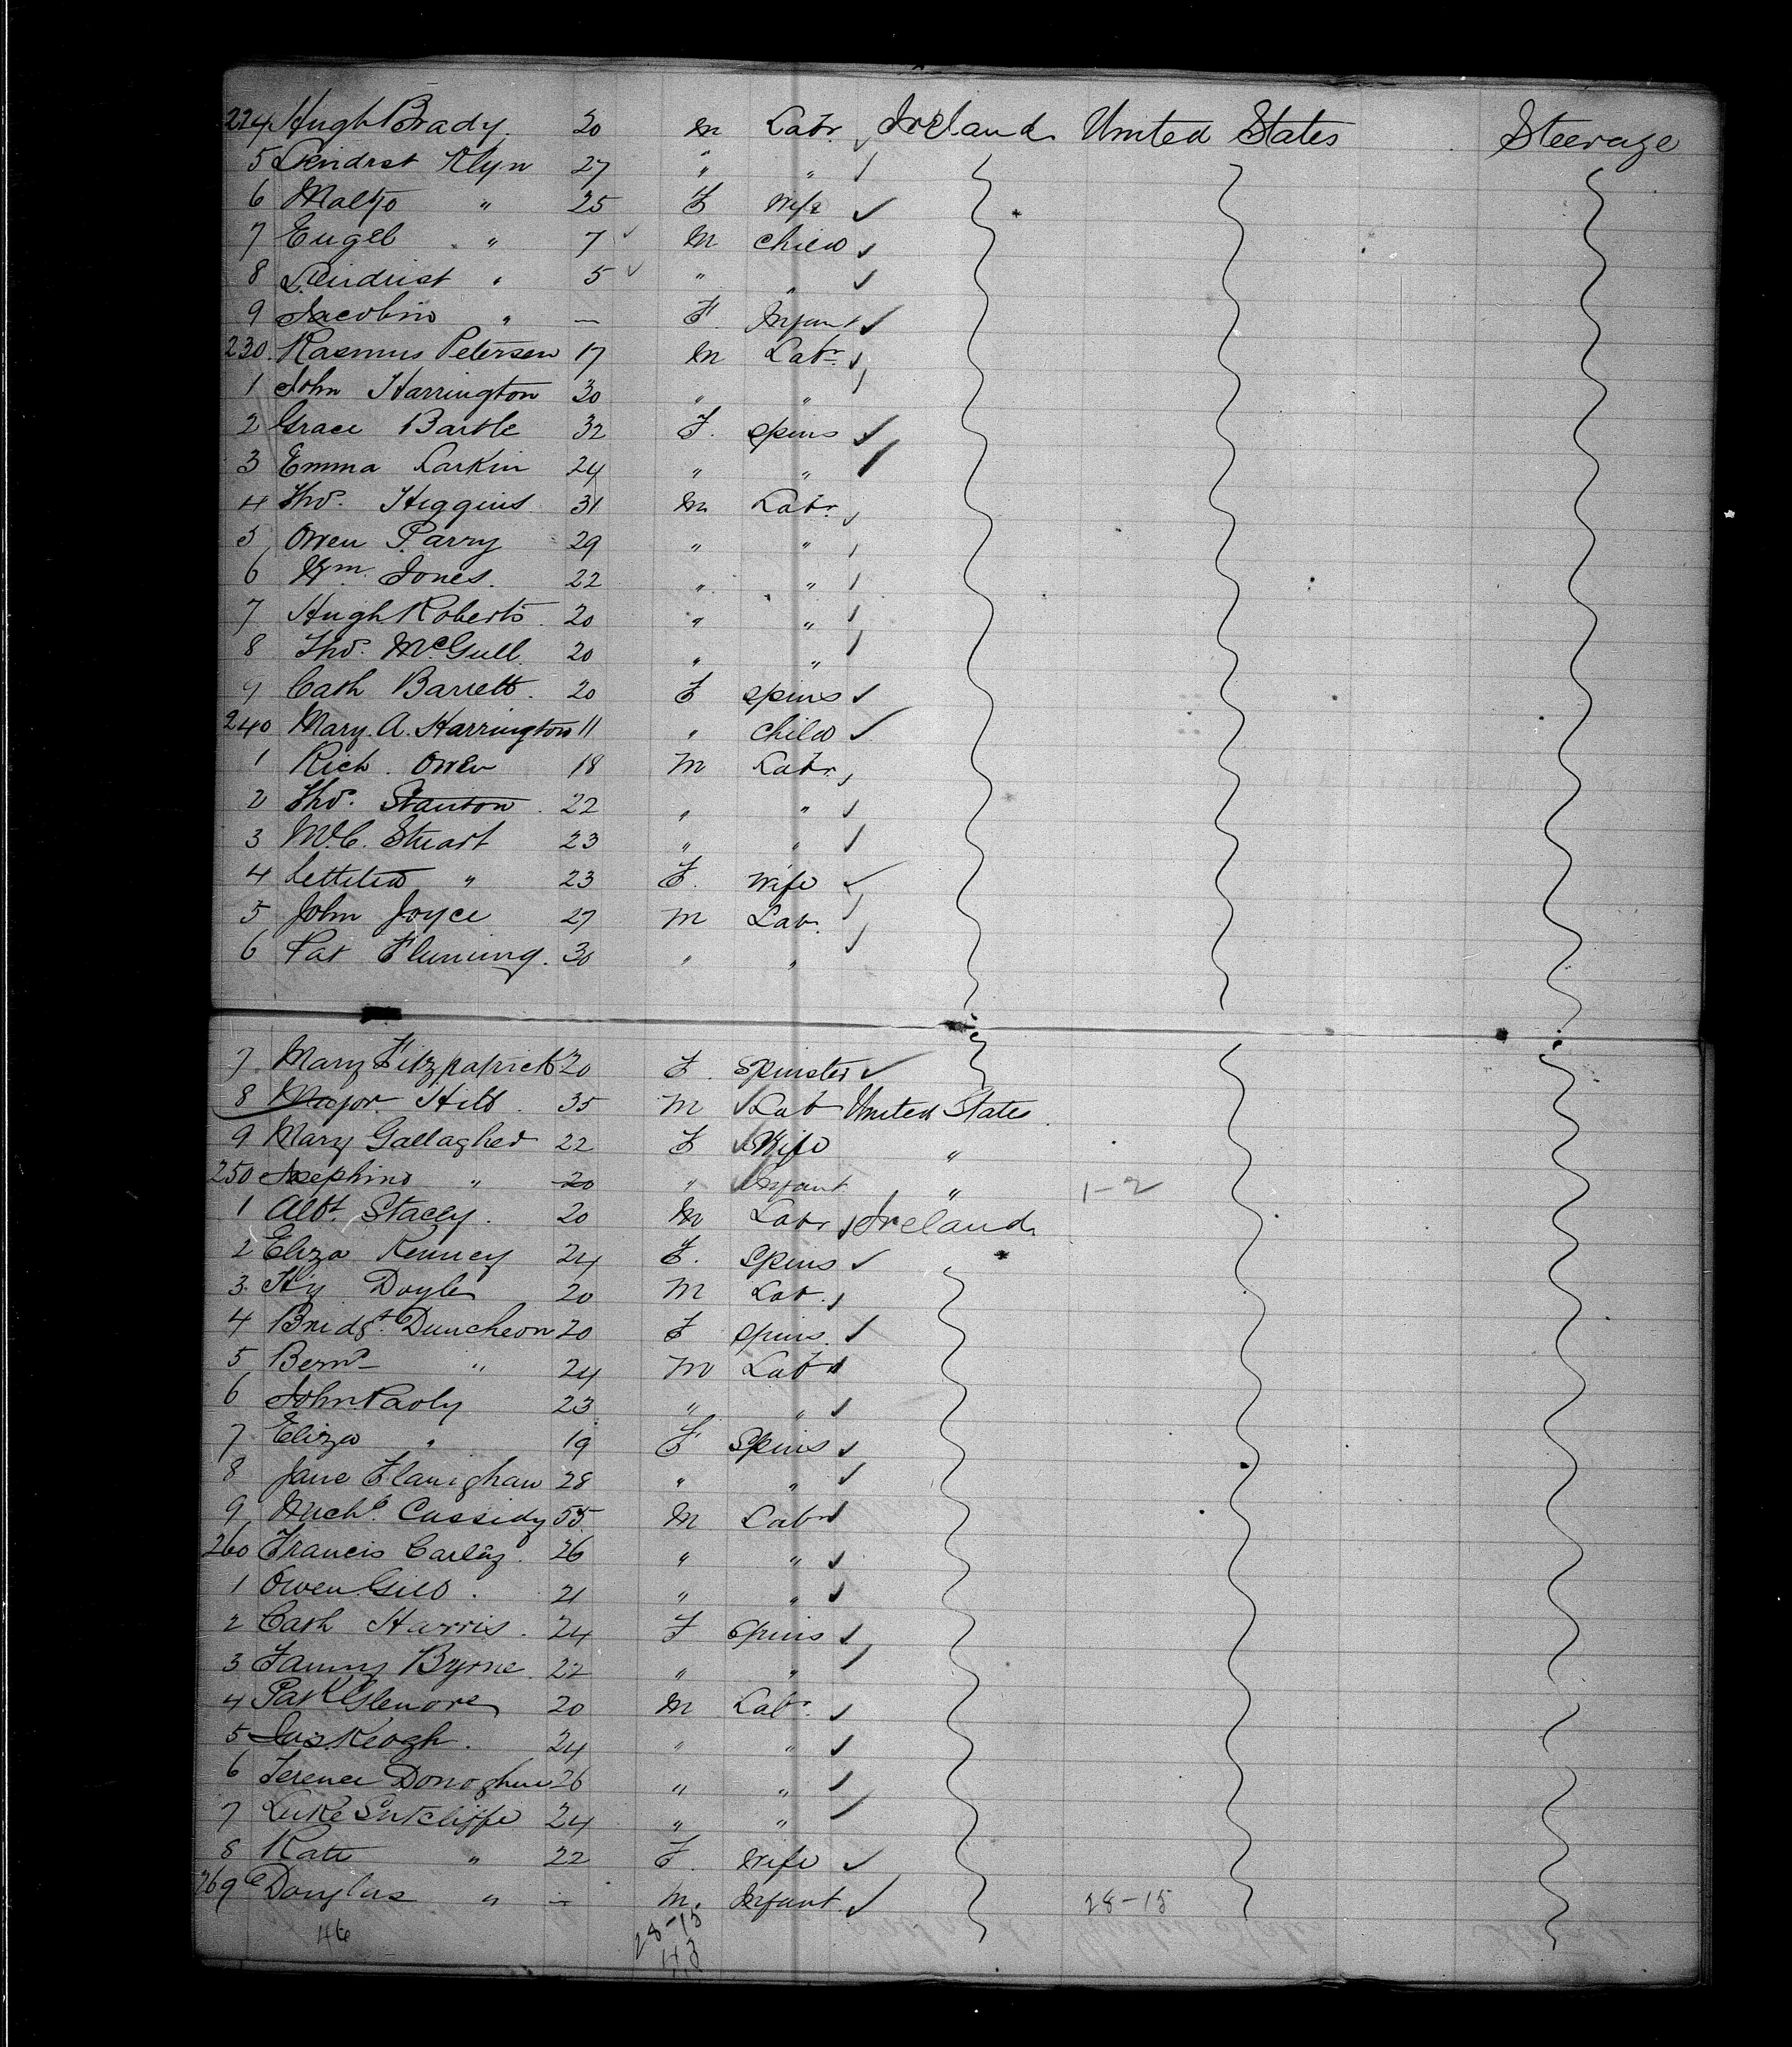 224 Hugh Brady. 20 m Labr. Ireland United States Steerage
5 Lendrst Klyn 27 " "
6 Maltjo " 25 F Wife
7 Engel " 7 M Child
8 Leindrist " 5 " "
9 Jacobino " — F. Infant
230. Rasmus Petersen 17 m Labr.
1 John Harrington 30 " "
2 Grace Bartle 32 F. Spins
3 Emma Larkin 24 " "
4 Thos. Higgins 31 m Labr.
5 Owen Parry 29 " "
6 Wm. Jones. 22 " "
7 Hugh Roberts. 20 " "
8 Thos. McGull. 20 " "
9 Cath Barrett. 20 F Spins
240 Mary A. Harrington 11 " Child
1 Rich. Owen 18 M Labr.
2 Thos. Stanton. 22 " "
3 Stuart 23 " "
4 " 23 F. Wife
5 John Joyce 27 M Lab.
6 Pat Fleming. 30 " "
7. Mary Fitzpatrick 20 F. Spinster
8 Major Hill. 35 M Lab United States
9 Mary Gallagher 22 F Wife "
250 Josephine " 20 " Infant " 1-2
1 Albt. Stacey. 20 M Labr Ireland
2 Eliza Kenney 24 F. Spins
3. Hy Doyle 20 M Lab.
4 Bridgt. Duncheon 20 F Spins.
5 Bernd " 24 M Labr
6 John Paoly 23 " "
7 Eliza " 19 F Spins
8 Jane Flanighan 28 " "
9 Michl. Cassidy 55. M Labr
260 Francis 26 " "
1 Owen Gill. 21 " "
2 Cath Harris. 24 F Spins
3 Fanny Byrne. 22 " "
4 Patk Glenore 20 M Labr.
5 Jas Keogh. 24 " "
6 Terence Donoghue 26 " "
7 Luke Sutcliffe 24 " "
8 Kate " 22 F. Wife
269 Douglas " — m. Infant 28-15
46 28-15
43